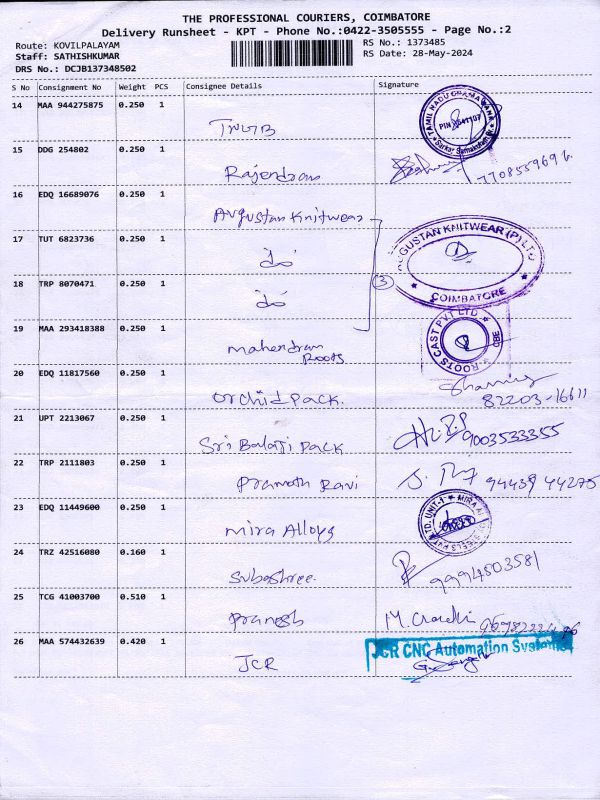 THE PROFESSIONAL COURIERS, COIMBATORE
Delivery Runsheet - KPT - Phone No.:0422-3505555 - Page No.:2
Route: KOVILPALAYAM
Staff: SATHISHKUMAR
DRS No.: DCJB137348502
RS No.: 1373485
RS Date: 28-May-2024
S No Consignment No Weight PCS Consignee Details Signature
14 MAA 944275875 0.250 1
TNGB
TAMIL NADU GRAMA BANK
PIN 641107
15 DDG 254802 0.250 1
Rajendran
7708559696
16 EDQ 16689076 0.250 1
Augustan Knitwear
AUGUSTAN KNITWEAR (P) LTD
COIMBATORE
17 TUT 6823736 0.250 1
do
18 TRP 8070471 0.250 1
do
3
19 MAA 293418388 0.250 1
Mahendran
Roots
ROOTS CAST PVT LTD
CBE
20 EDQ 11817560 0.250 1
Orchid Pack.
82203-16611
21 UPT 2213067 0.250 1
Sri Balaji Pack
9003533355
22 TRP 2111803 0.250 1
Pramoth Ravi
94439 44275
23 EDQ 11449600 0.250 1
Mira Alloys
24 TRZ 42516080 0.160 1
Subashree.
9994503581
25 TCG 41003700 0.510 1
Pranesh
26 MAA 574432639 0.420 1
JCR
JCR CNC Automation Systems